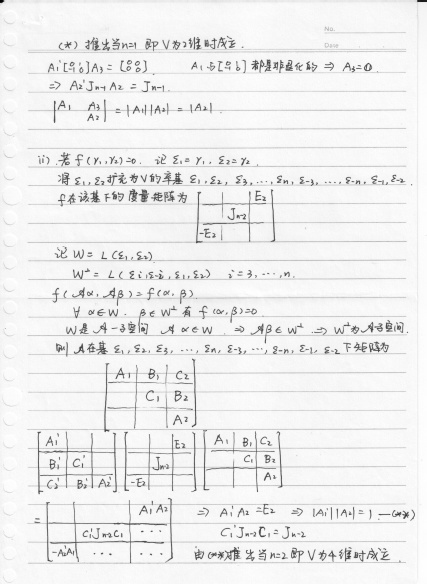 No.
Date
(*) 推出当n=1 即V为2维时成立.
A₁'[0 1; -1 0]A₃ = [0 0; 0 0]. A₁与[0 1; -1 0]都是非退化的 ⇒ A₃=0
⇒ A₂'Jn-1A₂ = Jn-1.
|A₁ A₃; A₂| = |A₁||A₂| = |A₂|.
ii) 若f(γ₁,γ₂)=0. 记 ε₁=γ₁, ε₂=γ₂
将ε₁,ε₂扩充为V的辛基 ε₁,ε₂,ε₃,…,εn,ε-3,…,ε-n,ε-1,ε-2
f在该基下的度量矩阵为
E₂
Jn-2
-E₂
记 W= L(ε₁,ε₂)
W⊥ = L(εi,ε-i,ε₁,ε₂) i=3,…,n.
f(Aα,Aβ)=f(α,β)
∀ α∈W. β∈W⊥ 有 f(α,β)=0.
W是A-子空间 Aα∈W ⇒ Aβ∈W⊥ ⇒ W⊥为A-子空间.
则A在基 ε₁,ε₂,ε₃,…,εn,ε-3,…,ε-n,ε-1,ε-2下矩阵为
A₁ B₁ C₂
C₁ B₂
A₂
A₁' E₂ A₁ B₁ C₂
B₁' C₁' Jn-2 C₁ B₂
C₂' B₂' A₂' -E₂ A₂
= A₁'A₂ ⇒ A₁'A₂=E₂ ⇒ |A₁'||A₂|=1 —(**)
C₁'Jn-2C₁ … C₁'Jn-2C₁=Jn-2
-A₂'A₁ … … 由(**)推出当n=2即V为4维时成立